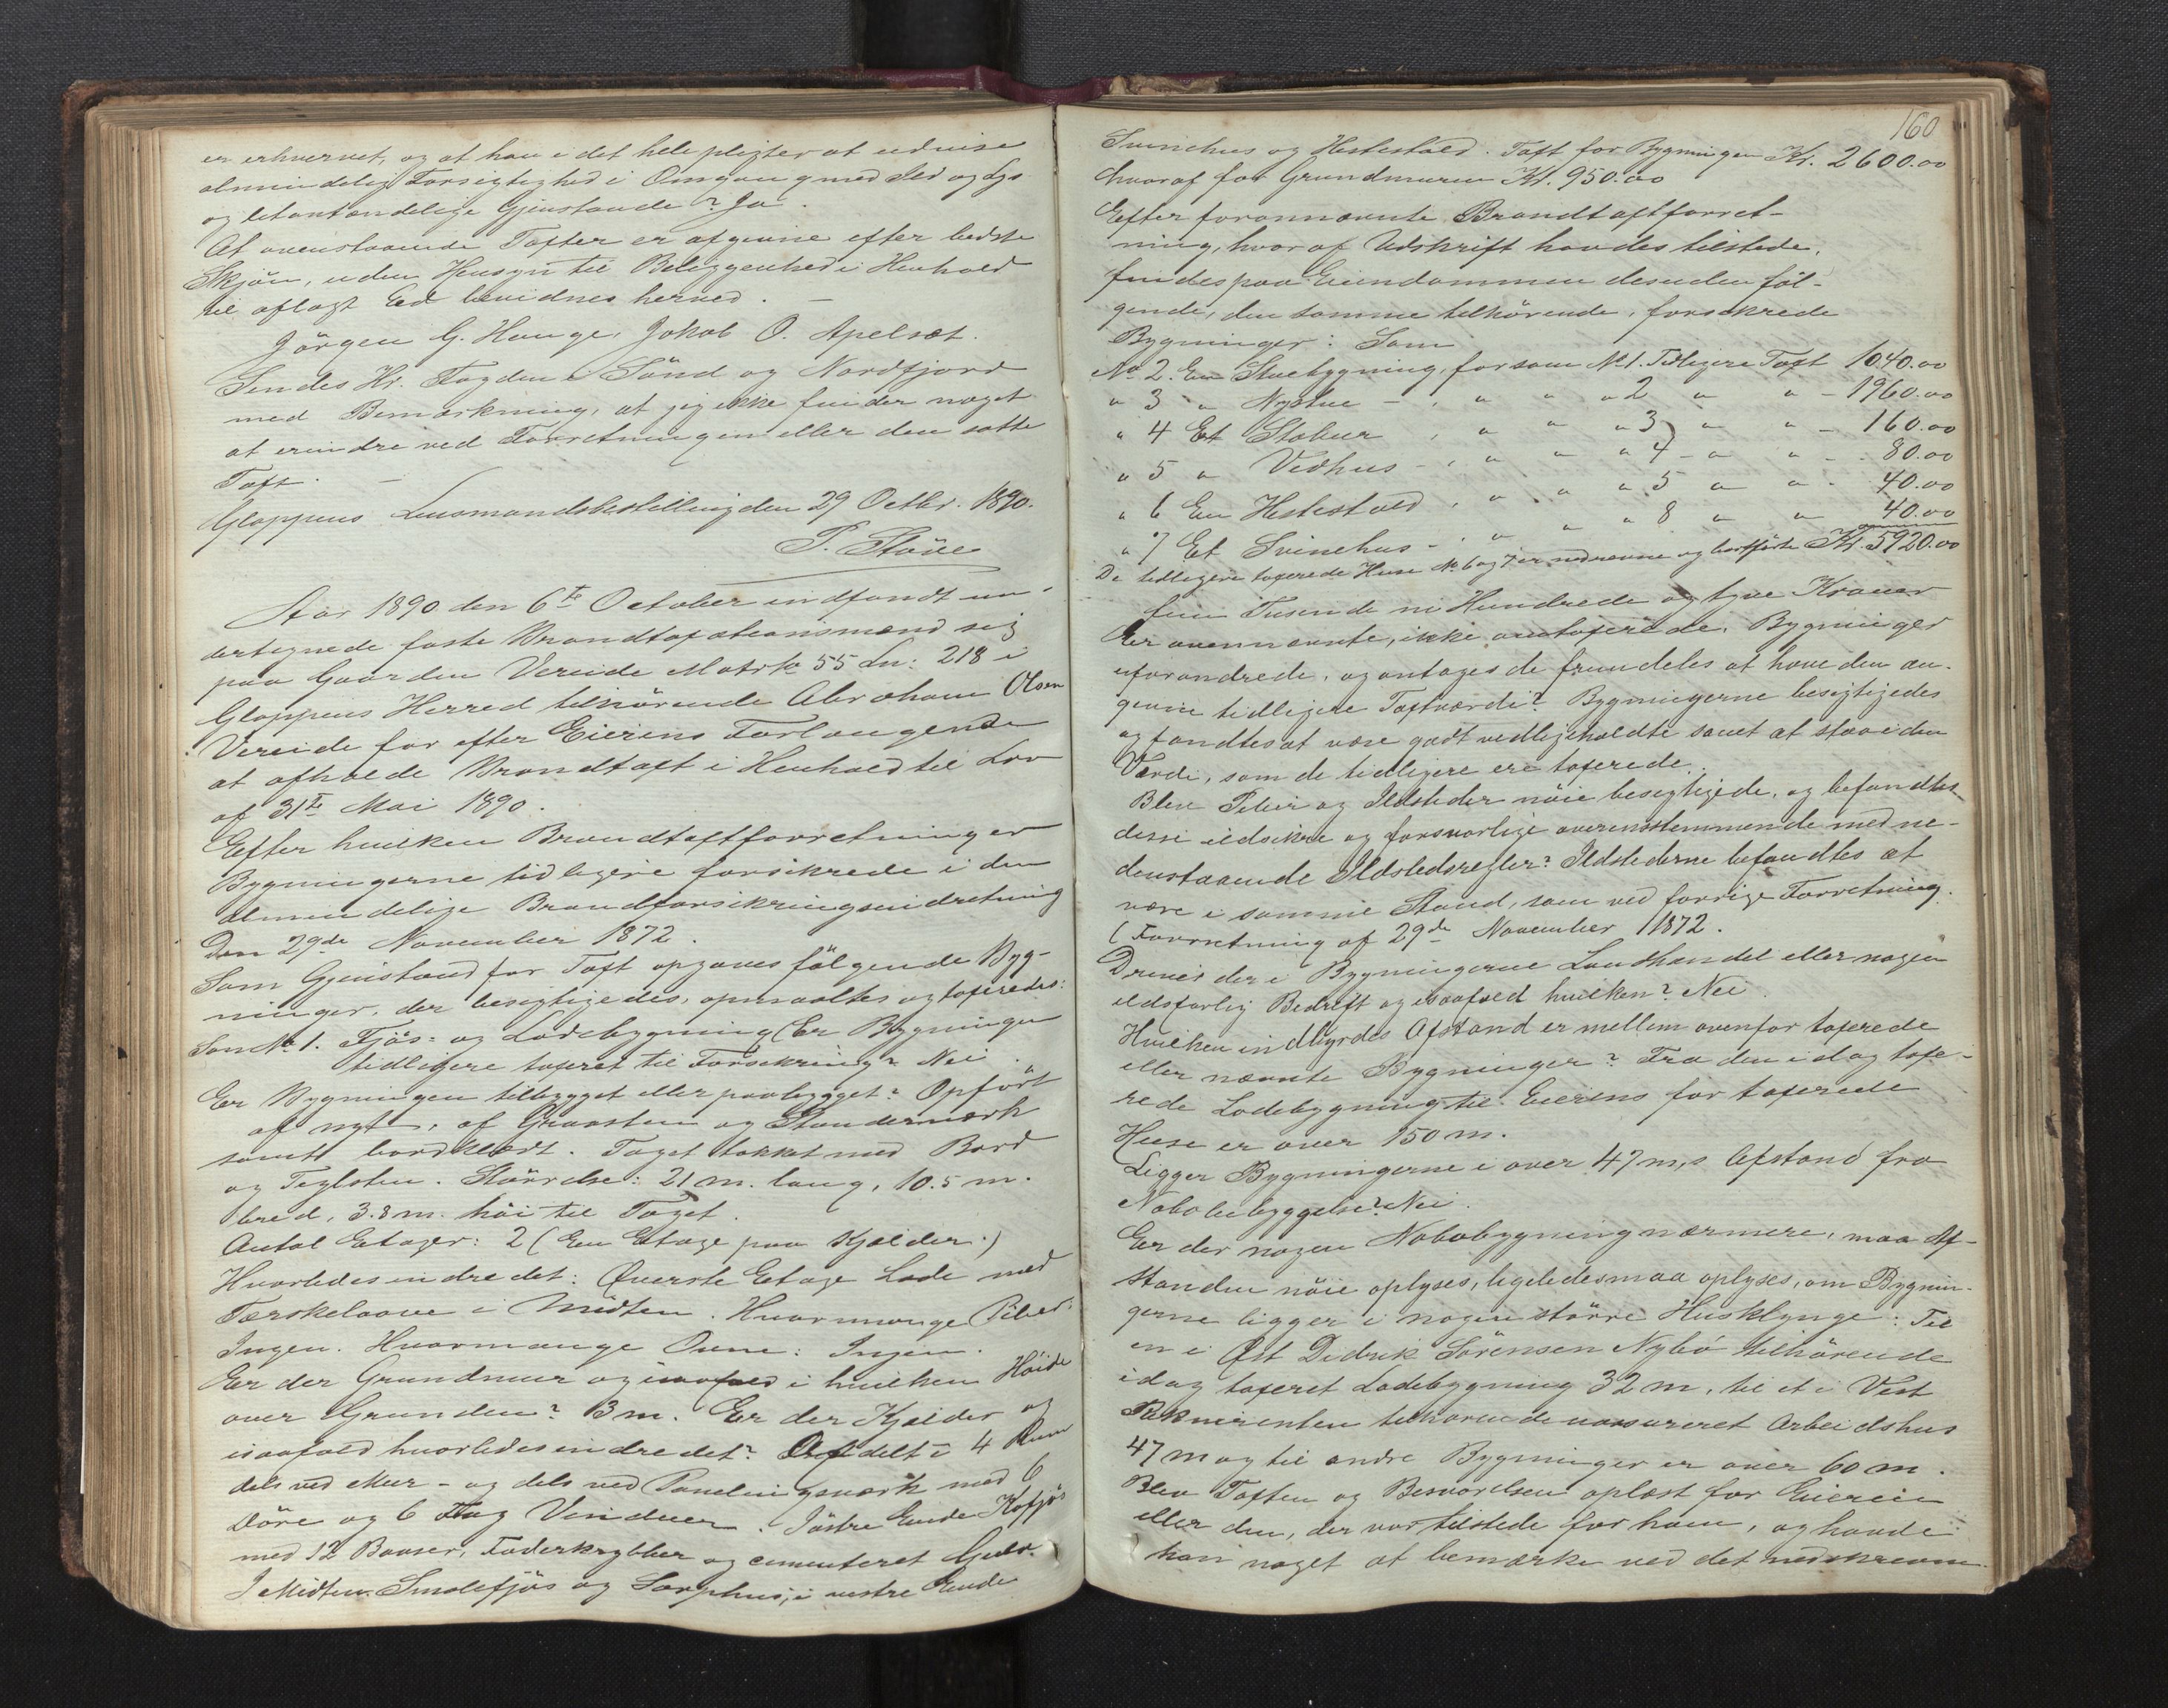 er erhvervet, og at han i det hele pligter at udvise
almindelig Forsigtighed i Omgang med Ild og Lys
og letantændelige Gjenstande? Ja.
At ovenstaaende Taxter er afgivne efter bedste
Skjön, uden Hensyn til Beliggenhed i Henhold
til aflagt Ed bevidnes herved. —
Jörgen G. Hauge. Jakob O. Apelsæt.
Sendes Hr. Fogden i Sönd og Nordfjord
med Bemærkning, at jeg ikke finder noget
at erindre ved Forretningen eller den satte
Taxt. —
Gloppens Lensmandsbestilling den 29 Octbr. 1890.
P. Flöue
Aar 1890 den 6te October indfandt un-
dertegnede faste Brandtaxationsmænd sig
paa Gaarden Vereide Matr№ 55 Ln: 218 i
Gloppens Herred tilhörende Abraham Olsen
Vereide for efter Eierens Forlangende
at afholde Brandtaxt i Henhold til Lov
af 31te Mai 1890.
Efter hvilken Brandtaxtforretning er
Bygningerne tidligere forsikrede i den
almindelige Brandforsikringsindretning
Den 29de November 1872.
Som Gjenstand for Taxt opgaves fölgende Byg-
ninger, der besigtigedes, opmaaltes og taxeredes:
Som № 1. Fjös- og Ladebygning (Er Bygningen
tidligere taxeret til Forsikring? Nei.
Er Bygningen tilbygget eller paabygget? Opfört
af nyt, af Graasten og Standerværk
samt bordklædt. Taget takket med Bord
og Teglsten. Störrelse: 21 m. lang, 10.5 m.
bred, 3.8 m. höi til Taget.
Antal Etager: 2 (En Etage paa Kjælder.)
Hvorledes indredet: Överste Etage Lade med
Tærskelaave i Midten. Hvormange Piber:
Ingen. Hvormange Ovne: Ingen.
Er der Grundmur og isaafald i hvilken Höide
over Grunden? 3 m. Er der Kjælder og
isaafald hvorledes indredet? Afdelt i 4 Rum
dels ved Mur- og dels ved Panelingsværk med 6
Döre og 6 Fag Vinduer. I östre Ende Kofjös
med 12 Baaser, Foderkrybber og cementeret Gulv.
I Midten Smalefjös og Sarphus, i vestre Ende
160
Svinehus og Hestestald. Taxt for Bygningen Kr. 2600.00
hvoraf for Grundmuren Kr. 950.00
Efter forannævnte Brandtaxtforret-
ning, hvoraf Udskrift havdes tilstede,
findes paa Eiendommen desuden föl-
gende, den samme tilhörende, forsikrede
Bygninger: Som
№ 2. En Stuebygning, för som № 1. Tidligere Taxt 1040.00
" 3 " Nystue - , " " " 2 " " - 1960.00
" 4 Et Stabur , " " " 3) " " - 160.00
" 5 " Vedhus - , " " " 4 - " " - 80.00
" 6 En Hestestald , " " " 5 " " - 40.00
" 7 Et Svinehus - , " " " 8 " " 40.00
De tidligere taxerede Huse № 6 og 7 er nedrevne og bortförte Kr. 5920.00
fem Tusende ni Hundrede og tyve Kroner
Er ovennævnte, ikke omtaxerede, Bygninger
uforandrede, og antages de fremdeles at have den an-
givne tidligere Taxtværdi? Bygningerne besigtigedes
og fandtes at være godt vedligeholdte samt at staa i den
Værdi, som de tidligere ere taxerede.
Blev Piber og Ildsteder nöie besigtigede, og befandtes
disse ildsikre og forsvarlige overensstemmende med ne-
denstaaende Ildstedsregler? Ildstederne befandtes at
være i samme Stand, som ved forrige Forretning.
(Forretning af 29de November 1872.
Drives der i Bygningerne Landhandel eller nogen
ildsfarlig Bedrift og isaafald hvilken? Nei.
Hvilken indbyrdes Afstand er mellem ovenfor taxerede
eller nævnte Bygninger? Fra den idag taxe-
rede Ladebygning til Eierens för taxerede
Huse er over 150 m.
Ligger Bygningerne i over 47 m.s Afstand fra
Nabobebyggelse? Nei.
Er der nogen Nabobygning nærmere, maa Af-
standen nöie oplyses, ligeledes maa oplyses, om Bygnin-
gerne ligger i nogen större Husklynge: Til
en i Öst Didrik Sörensen Nybö tilhörende
idag taxeret Ladebygning 32 m, til et i Vest
tilhörende uassureret Arbeidshus
47 m og til andre Bygninger er over 60 m.
Blev Taxten og Besvarelsen oplæst for Eieren
eller den, der var tilstede for ham, og havde
han noget at bemærke ved det nedskrevne